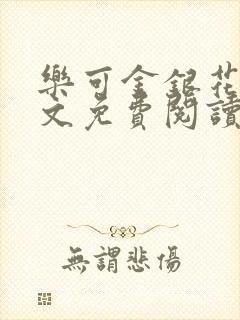 樂可金銀花
文免費閱讀
無謂悲傷